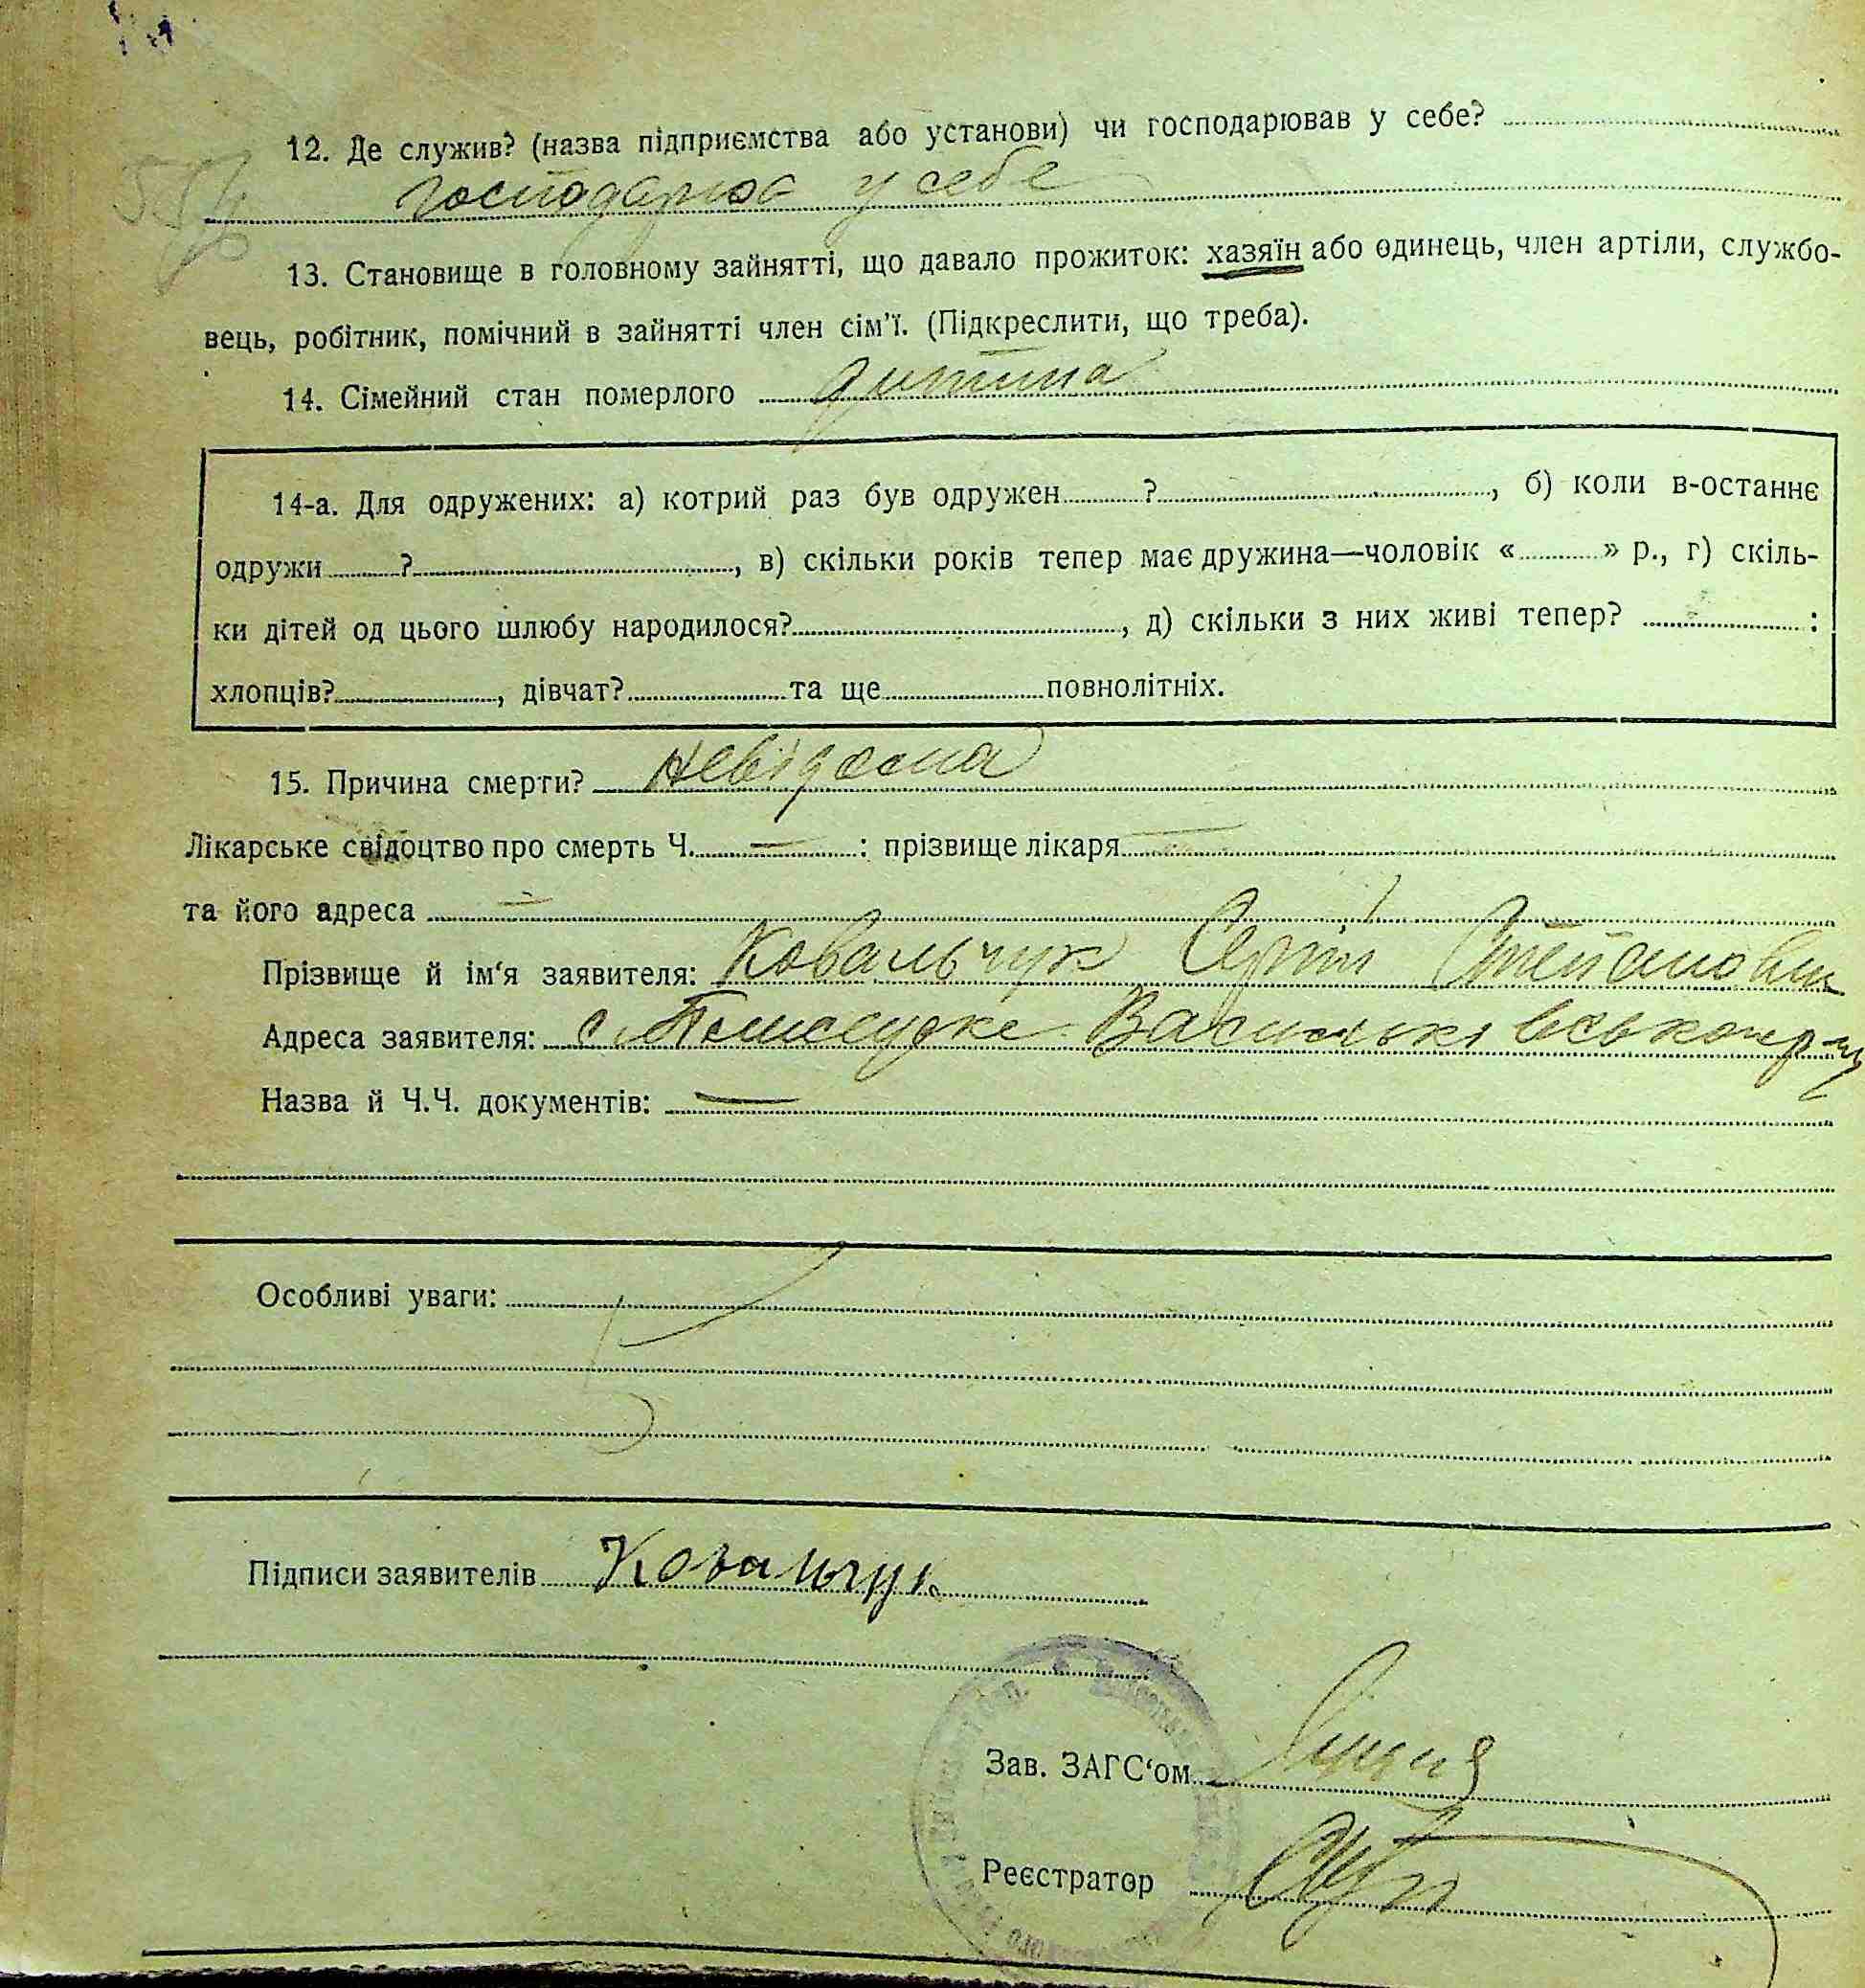 12. Де служив? (назва підприємства або установи) чи господарював у себе?
господарює у себе
13. Становище в головному зайнятті, що давало прожиток: хазяїн або одинець, член артіли, службо-
вець, робітник, помічний в зайнятті член сім'ї. (Підкреслити, що треба).
14. Сімейний стан померлого дитина
14-а. Для одружених: а) котрий раз був одружен ?, б) коли в-останнє
одружи ?, в) скільки років тепер має дружина—чоловік « » р., г) скіль-
ки дітей од цього шлюбу народилося?, д) скільки з них живі тепер? :
хлопців?, дівчат? та ще повнолітніх.
15. Причина смерти? невідома
Лікарське свідоцтво про смерть Ч. — : прізвище лікаря —
та його адреса —
Прізвище й ім'я заявителя: Ковальчук Сергій Степанович
Адреса заявителя: с. Васильківського р-ну
Назва й Ч.Ч. документів: —
Особливі уваги:
Підписи заявителів Ковальчук
Зав. ЗАГС'ом
Реєстратор